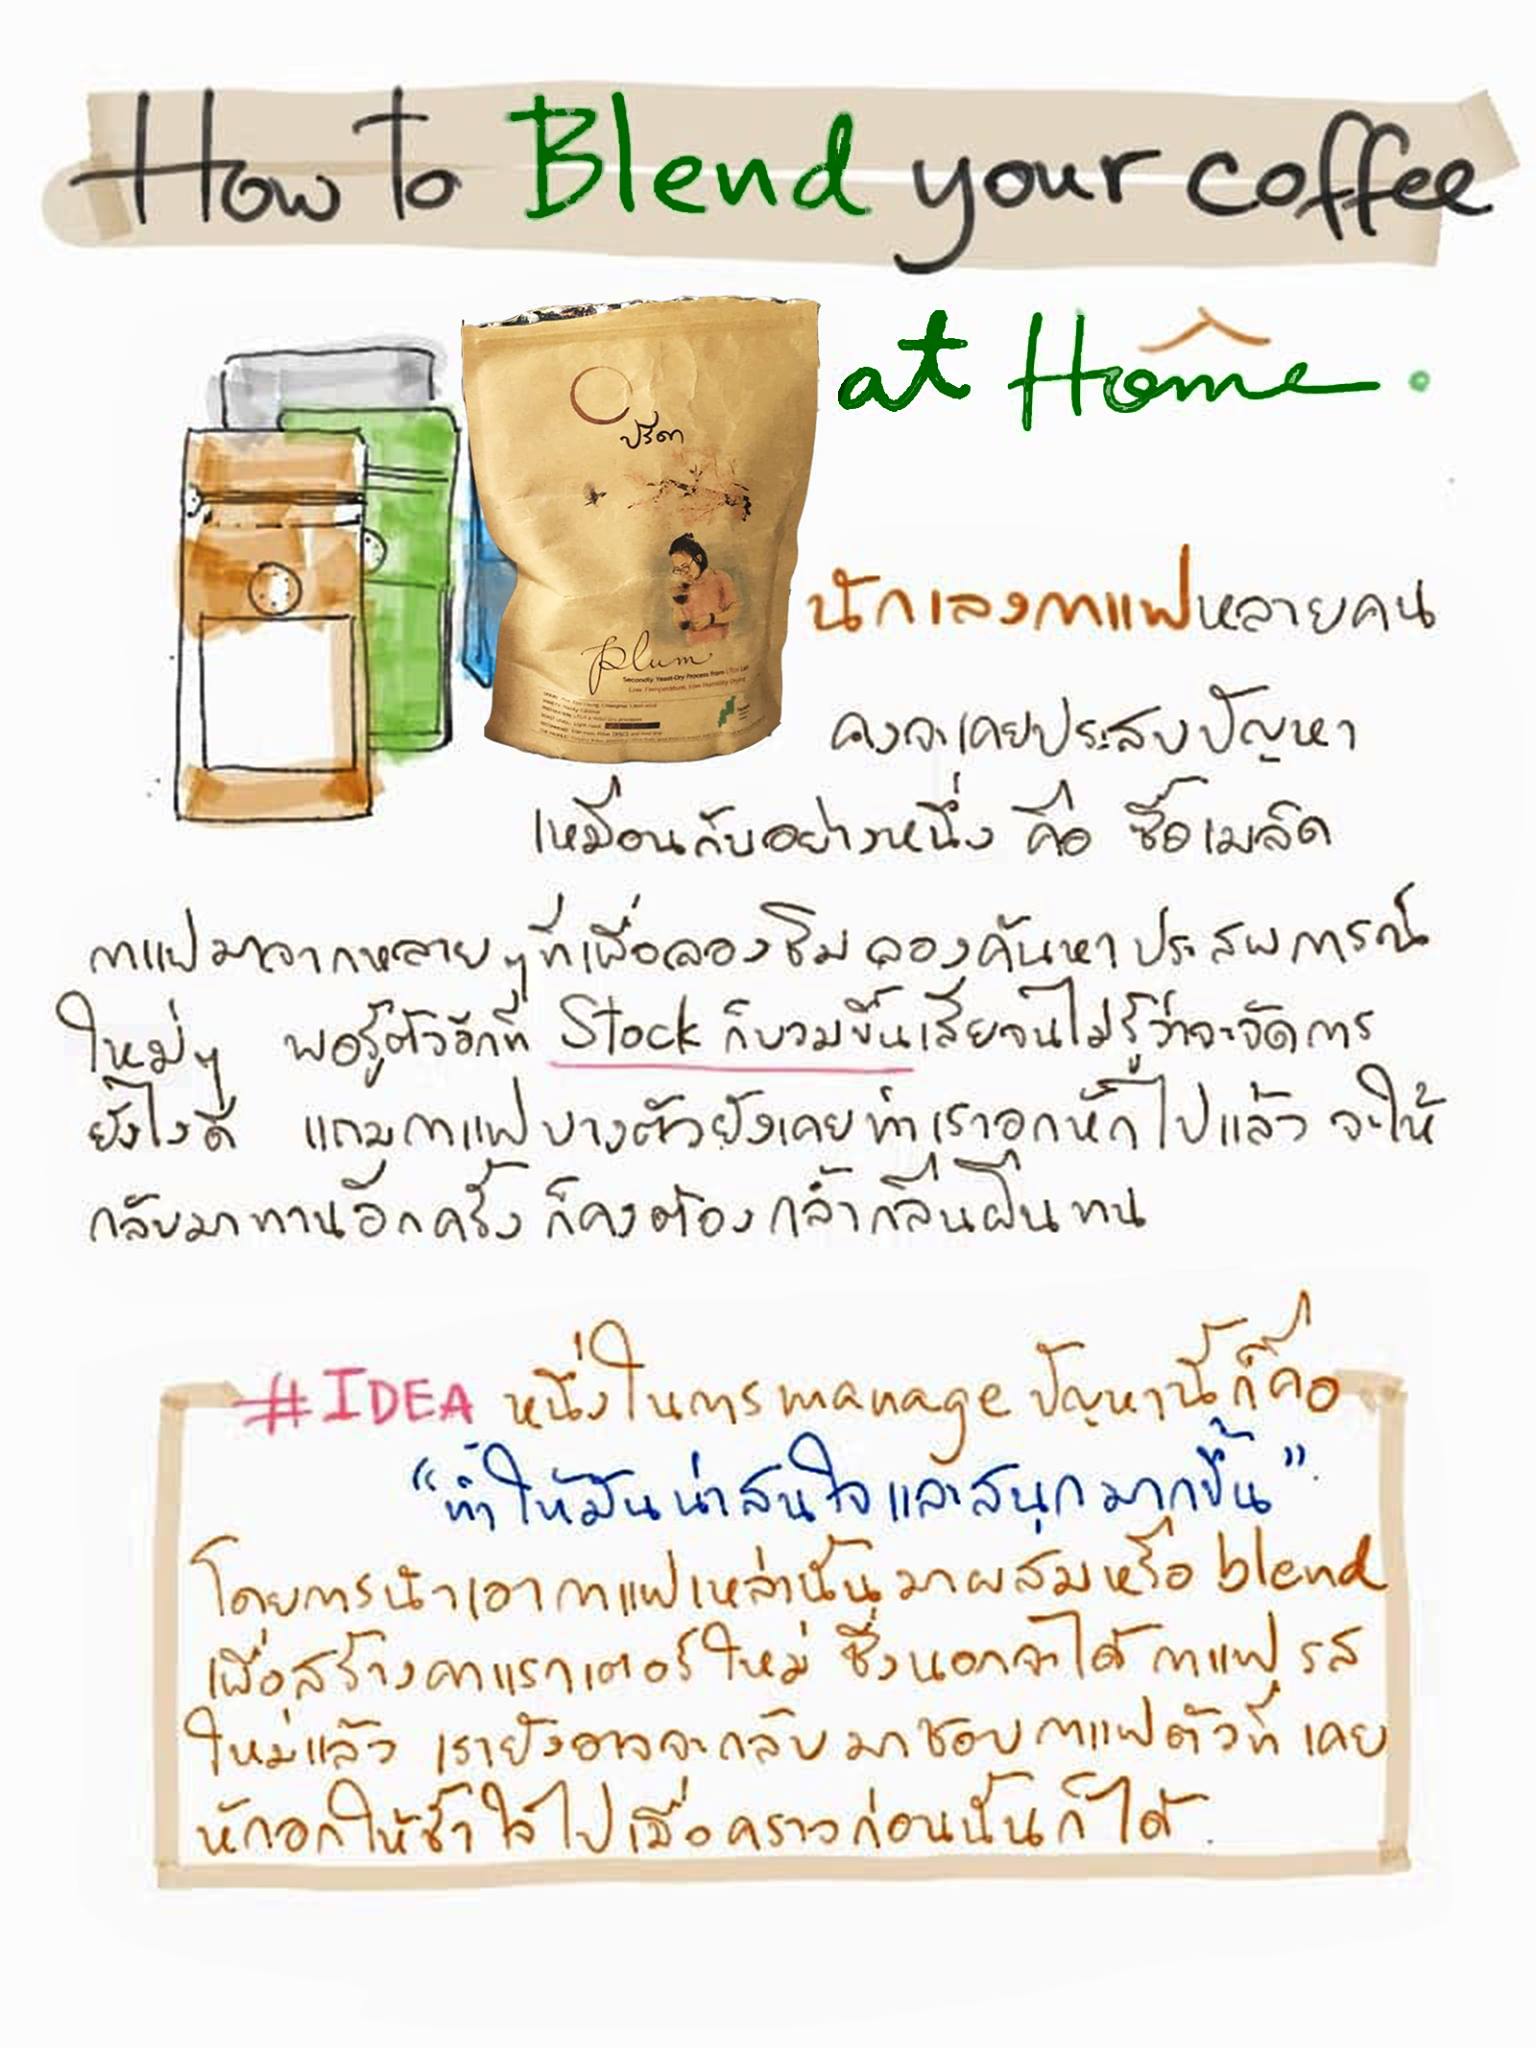 How To Blend your coffee
at Home.
ปรีดา
Plum
Secondly Yeast-Dry Process from
Low Temperature, Low Humidity Drying
นักเลงกาแฟหลายคน
คงจะเคยประสบปัญหา
เหมือนกับอย่างหนึ่ง คือ ซื้อเมล็ด
กาแฟมาจากหลายๆที่เพื่อลองชิม ลองค้นหาประสพการณ์
ใหม่ๆ พอรู้ตัวอีกที Stock ก็บวมขึ้นเสียจนไม่รู้ว่าจะจัดการ
ยังไงดี แถมกาแฟบางตัวยังเคยทำเราอกหักไปแล้ว จะให้
กลับมาทานอีกครั้ง ก็คงต้องกล้ำกลืนฝืนทน
#IDEA หนึ่งในการmanageปัญหานี้ก็คือ
“ทำให้มันน่าสนใจและสนุกมากขึ้น”
โดยการนำเอากาแฟเหล่านั้นมาผสมหรือ blend
เพื่อสร้างคาแรกเตอร์ใหม่ ซึ่งนอกจะได้กาแฟรส
ใหม่แล้ว เรายังอาจจะกลับมาชอบกาแฟตัวที่เคย
หักอกให้ช้ำใจไปเมื่อคราวก่อนนั้นก็ได้.